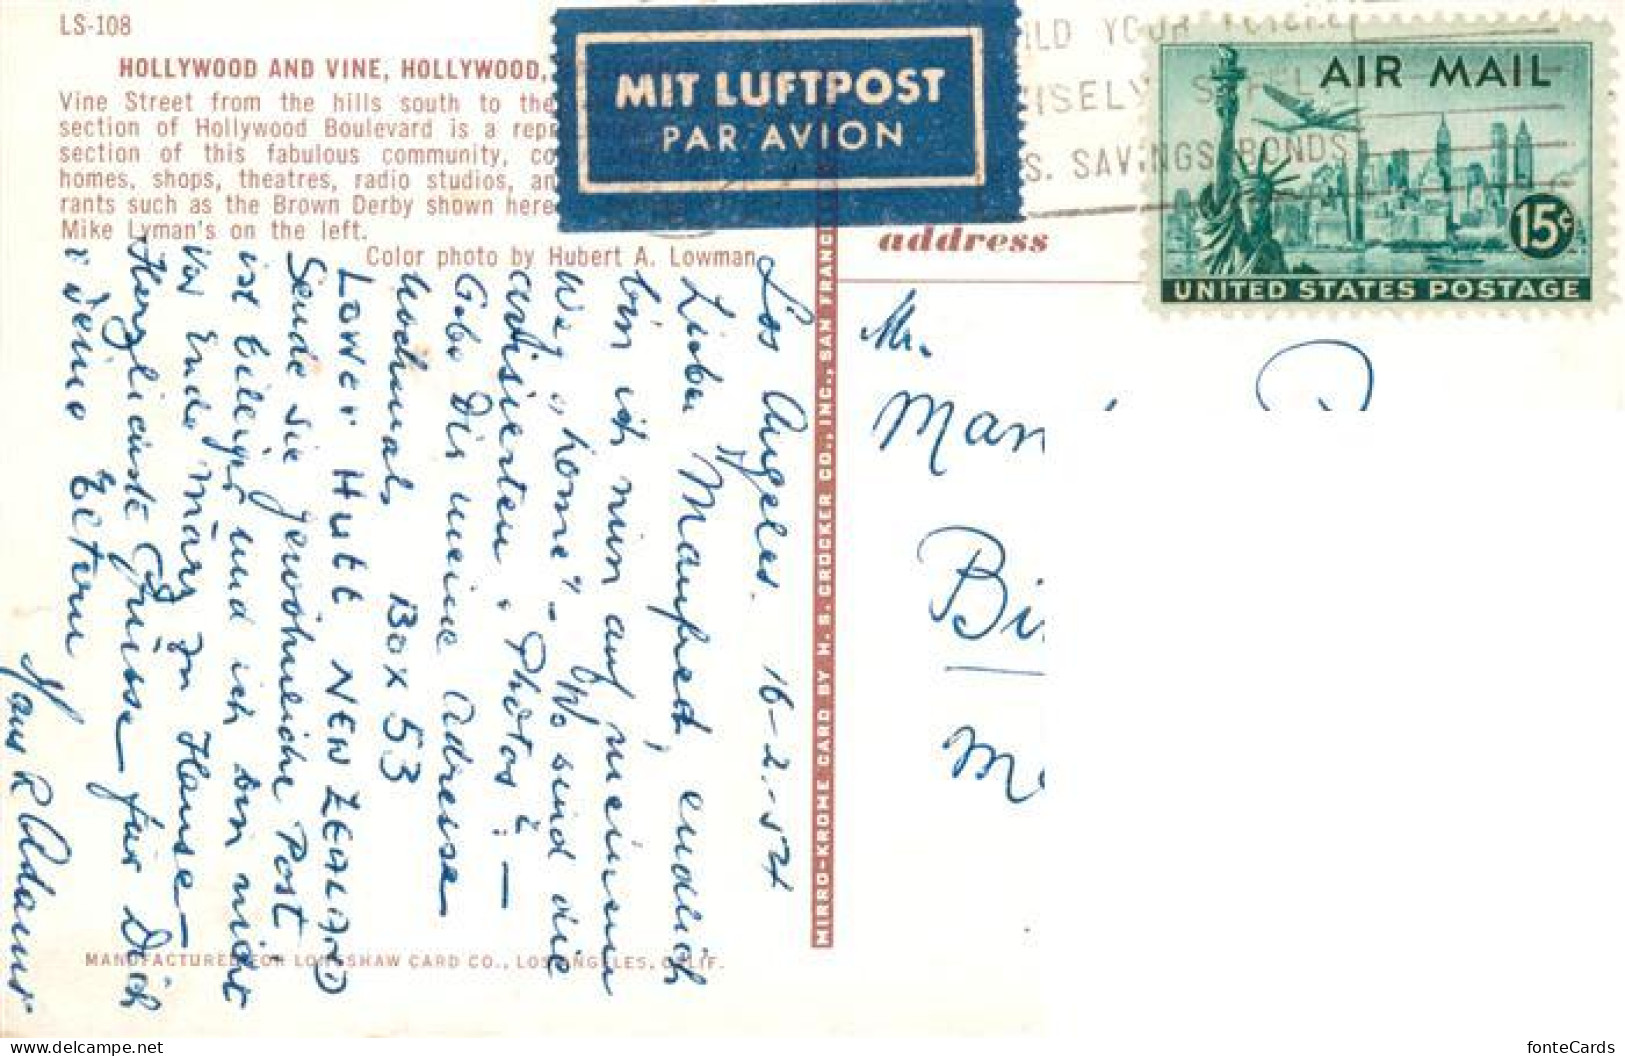 LS-108
HOLLYWOOD AND VINE, HOLLYWOOD,
Vine Street from the hills south to the
section of Hollywood Boulevard is a
section of this fabulous community,
homes, shops, theatres, radio studios,
rants such as the Brown Derby shown here
Mike Lyman's on the left.
Color photo by Hubert A. Lowman
MIT LUFTPOST
PAR AVION
YOUR
SAVINGS BONDS
AIR MAIL
15¢
UNITED STATES POSTAGE
address
Los Angeles. 16-2-54
Lieber Manfred, endlich
bin ich nun auf meinem
Weg „home" - Wo sind die
avisierten Photos? : —
Gebe Dir meine Adresse
nochmal, Box 53
Lower Hutt NEW ZEALAND
Sende sie gewöhnliche Post.
ist billiger und ich bin nicht
vor Ende März zu Hause —
Herzlichste Grüsse für Dich
Deine Eltern
Hans R Adams
MIRRO-KROME CARD BY H. S. CROCKER CO., INC., SAN
Mr.
MANUFACTURED FOR LONGSHAW CARD CO., LOS ANGELES, CALIF.
www.delcampe.net
fonteCards